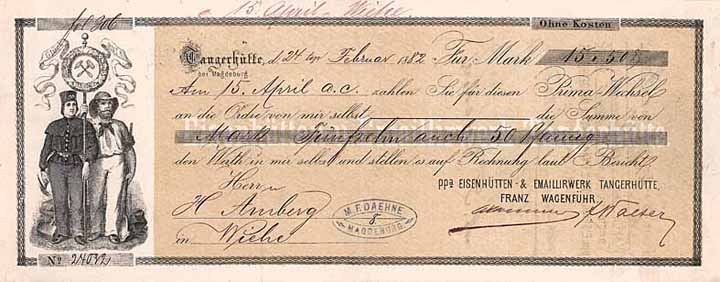 fol. 206
15. April - Wiehe
Ohne Kosten
Tangerhütte, d 24 ten Februar 1882 Für Mark 15,50
bei Magdeburg
Am 15 April a.c. zahlen Sie für diesen Prima-Wechsel
an die Ordre von mir selbst die Summe von
Mark Fünfzehn auch 50 Pfennig
den Werth in mir selbst und stellen es auf Rechnung laut Bericht
Herrn
H Amberg
in Wiehe
M. F. DAEHNE
8
MAGDEBURG
ppa EISENHÜTTEN- & EMAILLIRWERK TANGERHÜTTE,
FRANZ WAGENFÜHR.
No 24032